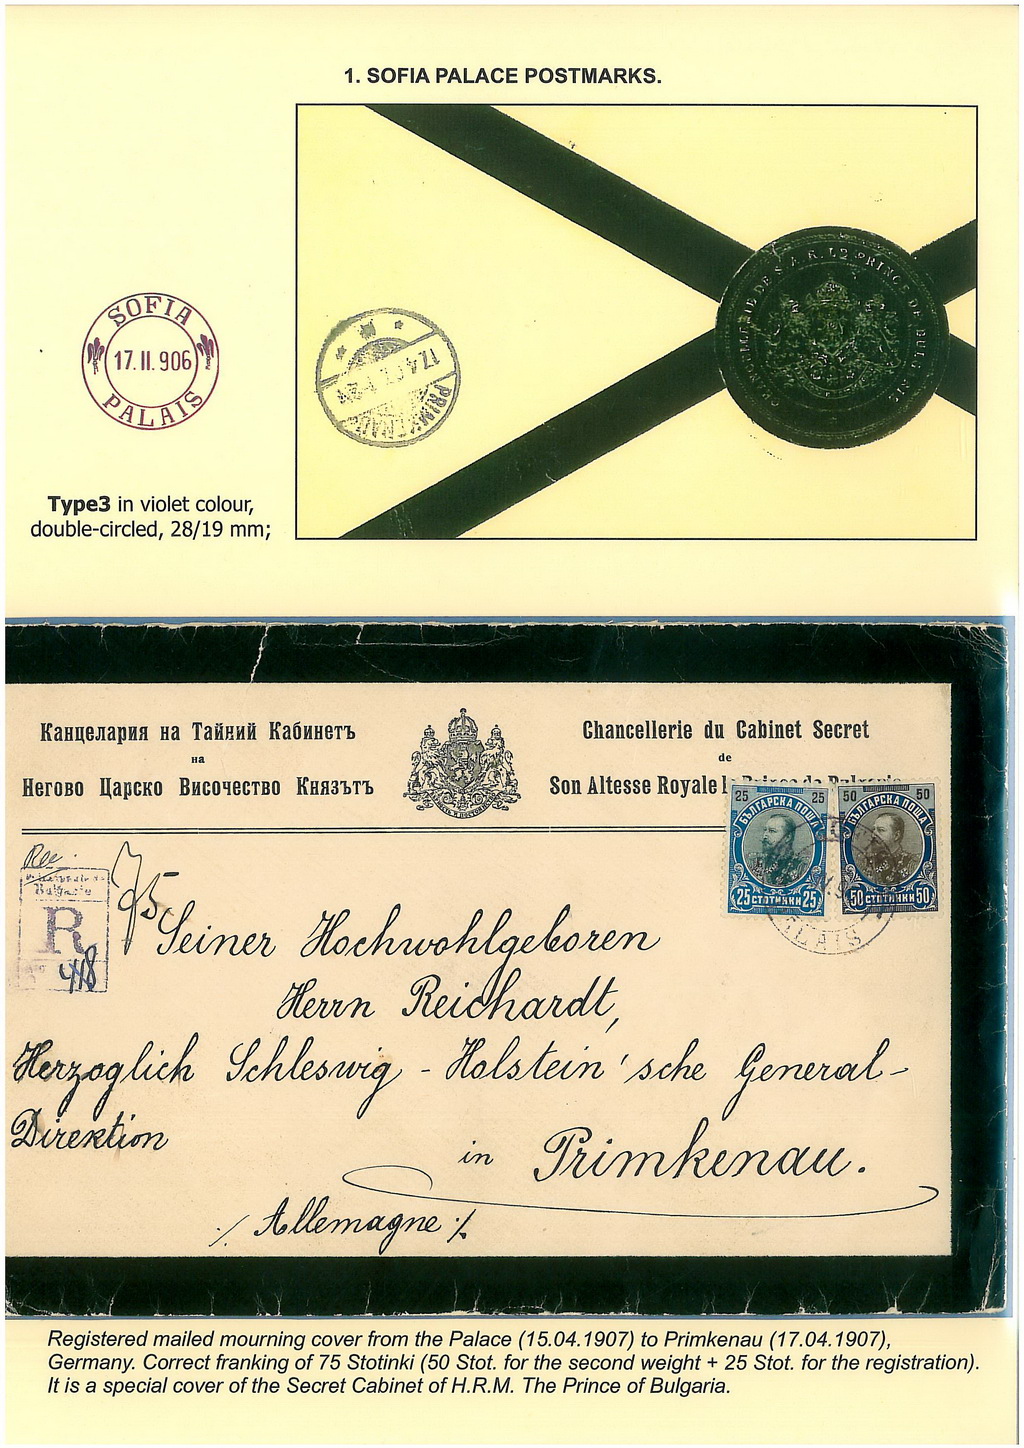 1. SOFIA PALACE POSTMARKS.
SOFIA
17.II.906
PALAIS
PRIMKENAU
Type3 in violet colour,
double-circled, 28/19 mm;
Канцелария на Тайний Кабинетъ
на
Негово Царско Височество Князътъ
Chancellerie du Cabinet Secret
de
Son Altesse Royale
25 25
БЪЛГАРСКА ПОЩА
25 СТОТИНКИ 25
50 50
БЪЛГАРСКА ПОЩА
50 СТОТИНКИ 50
Rec.
Bulgarie
R
No 448
75
Seiner Hochwohlgeboren
Herrn Reichardt,
Herzoglich Schleswig - Holstein'sche General-
Direktion
in Primkenau.
./. Allemagne ./.
Registered mailed mourning cover from the Palace (15.04.1907) to Primkenau (17.04.1907),
Germany. Correct franking of 75 Stotinki (50 Stot. for the second weight + 25 Stot. for the registration).
It is a special cover of the Secret Cabinet of H.R.M. The Prince of Bulgaria.